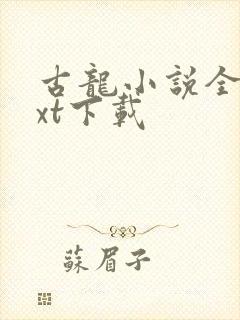 古龍小説全
xt下載
蘇眉子